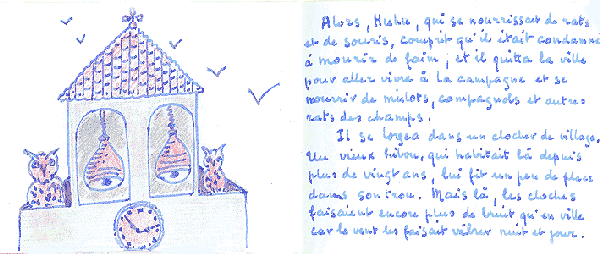 Alors, Hulu, qui se nourrissait de rats
et de souris, comprit qu'il était condamné
à mourir de faim, et il quitta la ville
pour aller vivre à la campagne et se
nourrir de mulots, campagnols et autres
rats des champs.
Il se logea dans un clocher de village.
Un vieux hibou, qui habitait là depuis
plus de vingt ans, lui fit un peu de place
dans son trou. Mais là, les cloches
faisaient encore plus de bruit qu'en ville
car le vent les faisait vibrer nuit et jour.